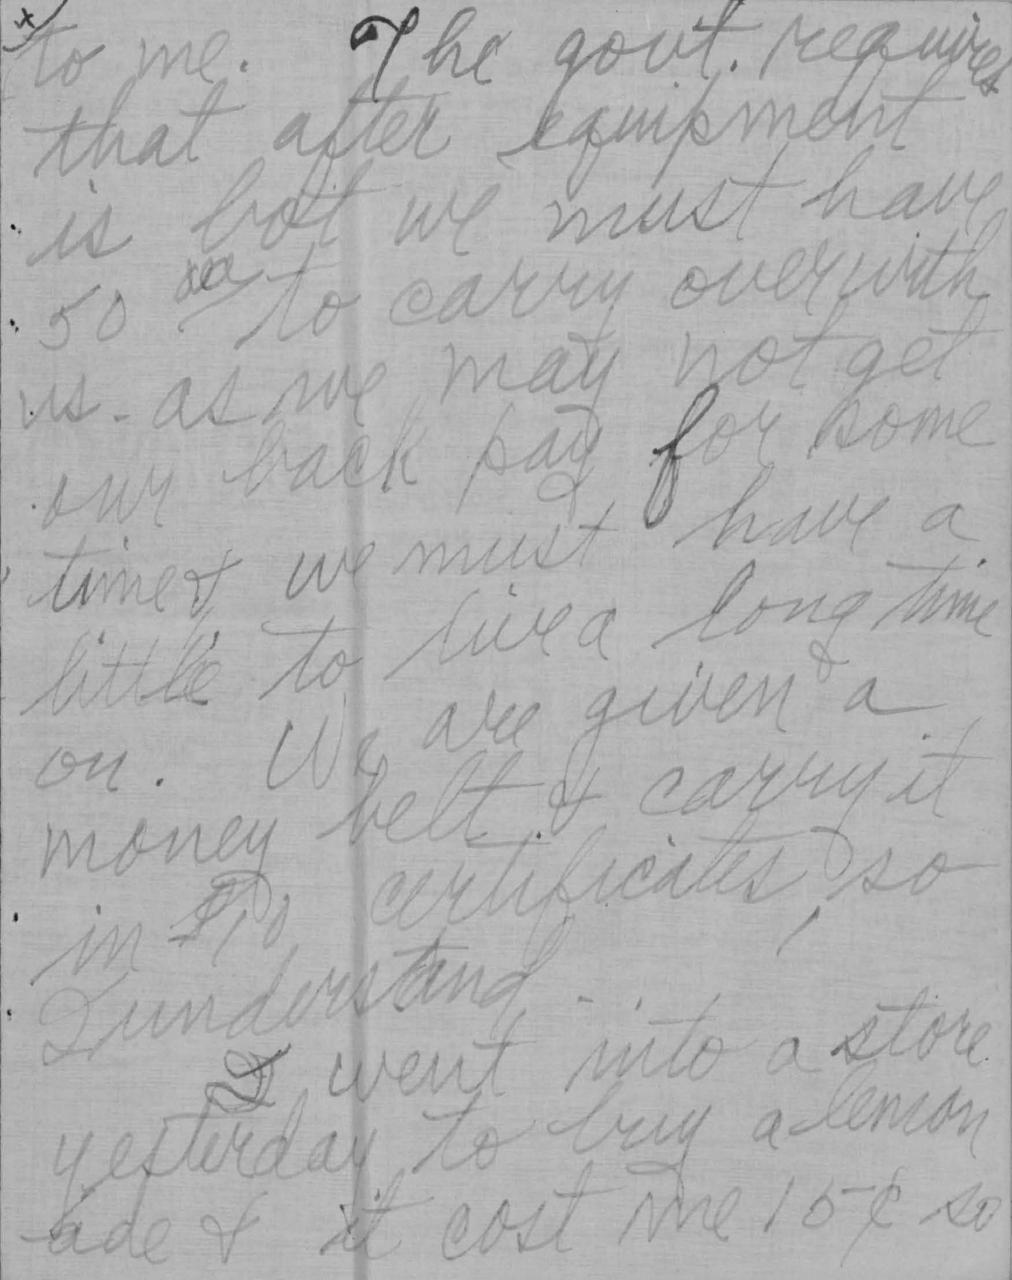 to me. The govt. requires
that after equipment
is bot we must have
50 to carry over with
us - as we may not get
our back pay for some
time & we must have a
little to live a long time
on. We are given a
money belt & carry it
in $10 certificates, so
I understand.
I went into a store
yesterday to buy a lemon
ade & it cost me 15¢ so